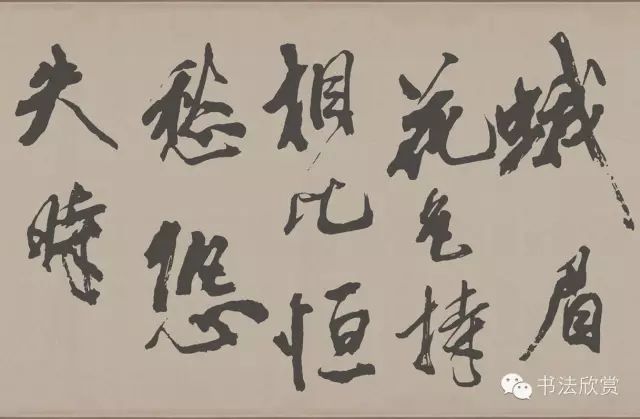 蛾眉
花色持
相比恒
愁恐
失時
书法欣赏